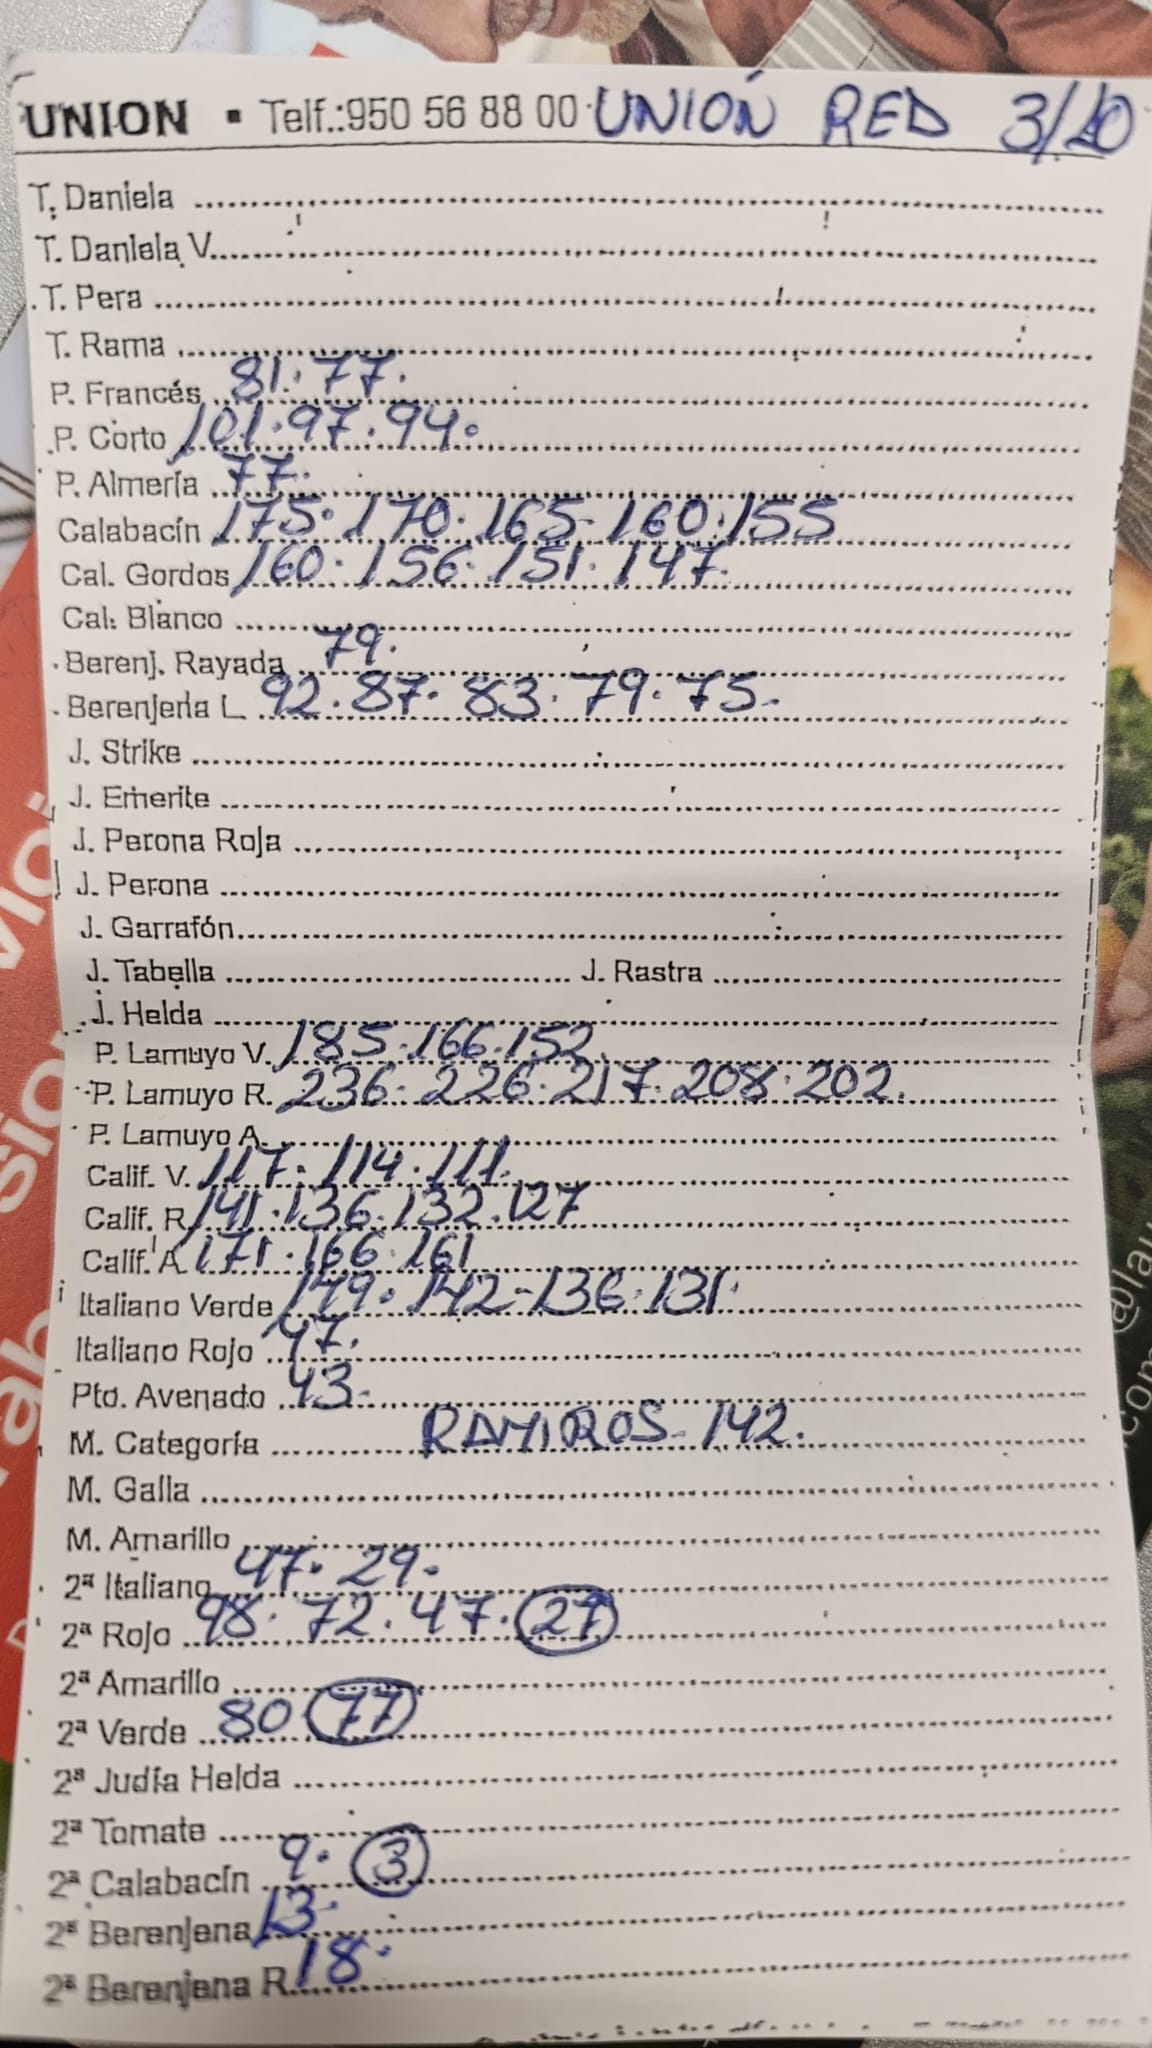 UNION • Telf.:950 56 88 00 UNIÓN RED 3/10
T. Daniela
T. Daniela V.
T. Pera
T. Rama
P. Francés 81. 77.
P. Corto 101. 97. 94.
P. Almería 77.
Calabacín 175. 170. 165. 160. 155
Cal. Gordos 160. 156. 151. 147.
Cal. Blanco
Berenj. Rayada 79.
Berenjena L. 92. 87. 83. 79. 75.
J. Strike
J. Emerite
J. Perona Roja
J. Perona
J. Garrafón
J. Tabella J. Rastra
J. Helda
P. Lamuyo V. 185. 166. 152.
P. Lamuyo R. 236. 226. 217. 208. 202.
P. Lamuyo A.
Calif. V. 117. 114. 111.
Calif. R. 141. 136. 132. 127
Calif. A 171. 166. 161
Italiano Verde 149. 142-136. 131.
Italiano Rojo 47.
Pto. Avenado 43.
M. Categoría RAMIROS- 142.
M. Galia
M. Amarillo
2ª Italiano 47. 29.
2ª Rojo 98. 72. 47. 27
2ª Amarillo
2ª Verde 80 77
2ª Judía Helda
2ª Tomate
2ª Calabacín 9. 3
2ª Berenjena 13.
2ª Berenjena R. 18.